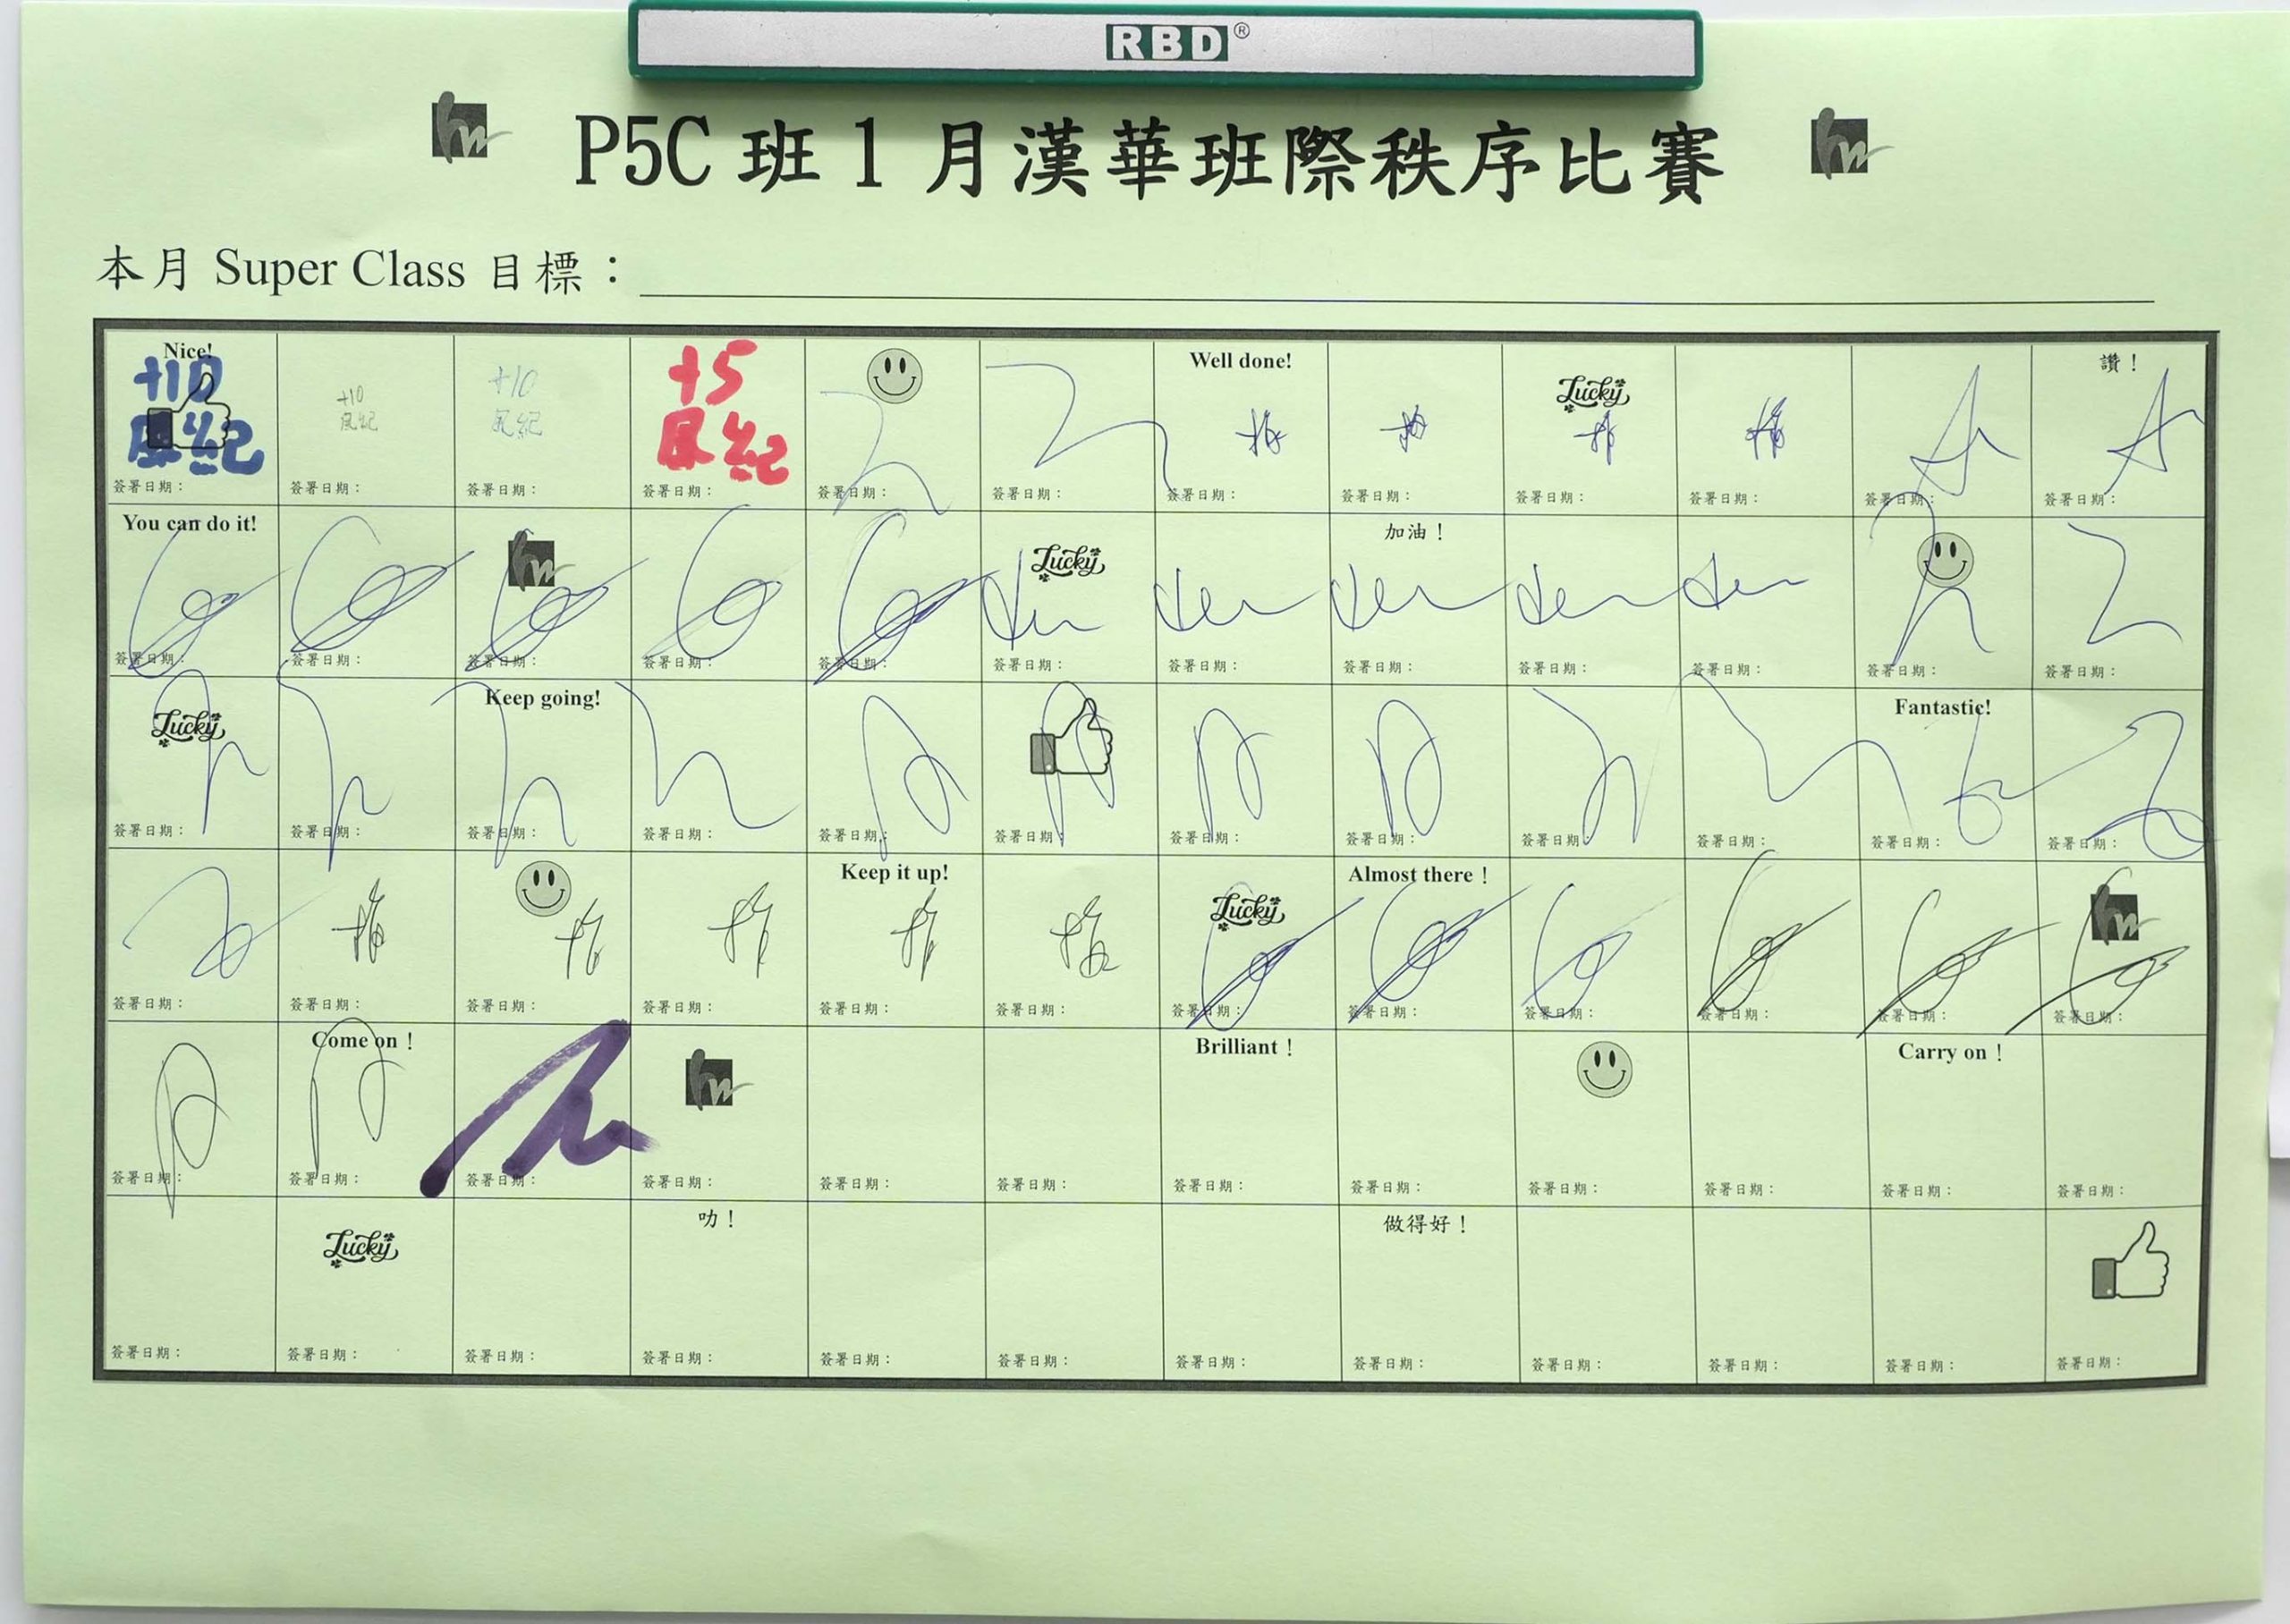 RBD®
P5C 班 1 月漢華班際秩序比賽
本月 Super Class 目標：
Nice! Well done! Lucky 讚！
+10 +10 +10 +5
風紀 風紀 風紀 風紀
簽署日期： 簽署日期： 簽署日期： 簽署日期： 簽署日期： 簽署日期： 簽署日期： 簽署日期： 簽署日期： 簽署日期： 簽署日期： 簽署日期：
You can do it! hw Lucky 加油！
簽署日期： 簽署日期： 簽署日期： 簽署日期： 簽署日期： 簽署日期： 簽署日期： 簽署日期： 簽署日期： 簽署日期： 簽署日期： 簽署日期：
Lucky Keep going! Fantastic!
簽署日期： 簽署日期： 簽署日期： 簽署日期： 簽署日期： 簽署日期： 簽署日期： 簽署日期： 簽署日期： 簽署日期： 簽署日期： 簽署日期：
Keep it up! Lucky Almost there！ hw
簽署日期： 簽署日期： 簽署日期： 簽署日期： 簽署日期： 簽署日期： 簽署日期： 簽署日期： 簽署日期： 簽署日期： 簽署日期： 簽署日期：
Come on！ hw Brilliant！ Carry on！
簽署日期： 簽署日期： 簽署日期： 簽署日期： 簽署日期： 簽署日期： 簽署日期： 簽署日期： 簽署日期： 簽署日期： 簽署日期： 簽署日期：
Lucky 叻！ 做得好！
簽署日期： 簽署日期： 簽署日期： 簽署日期： 簽署日期： 簽署日期： 簽署日期： 簽署日期： 簽署日期： 簽署日期： 簽署日期： 簽署日期：